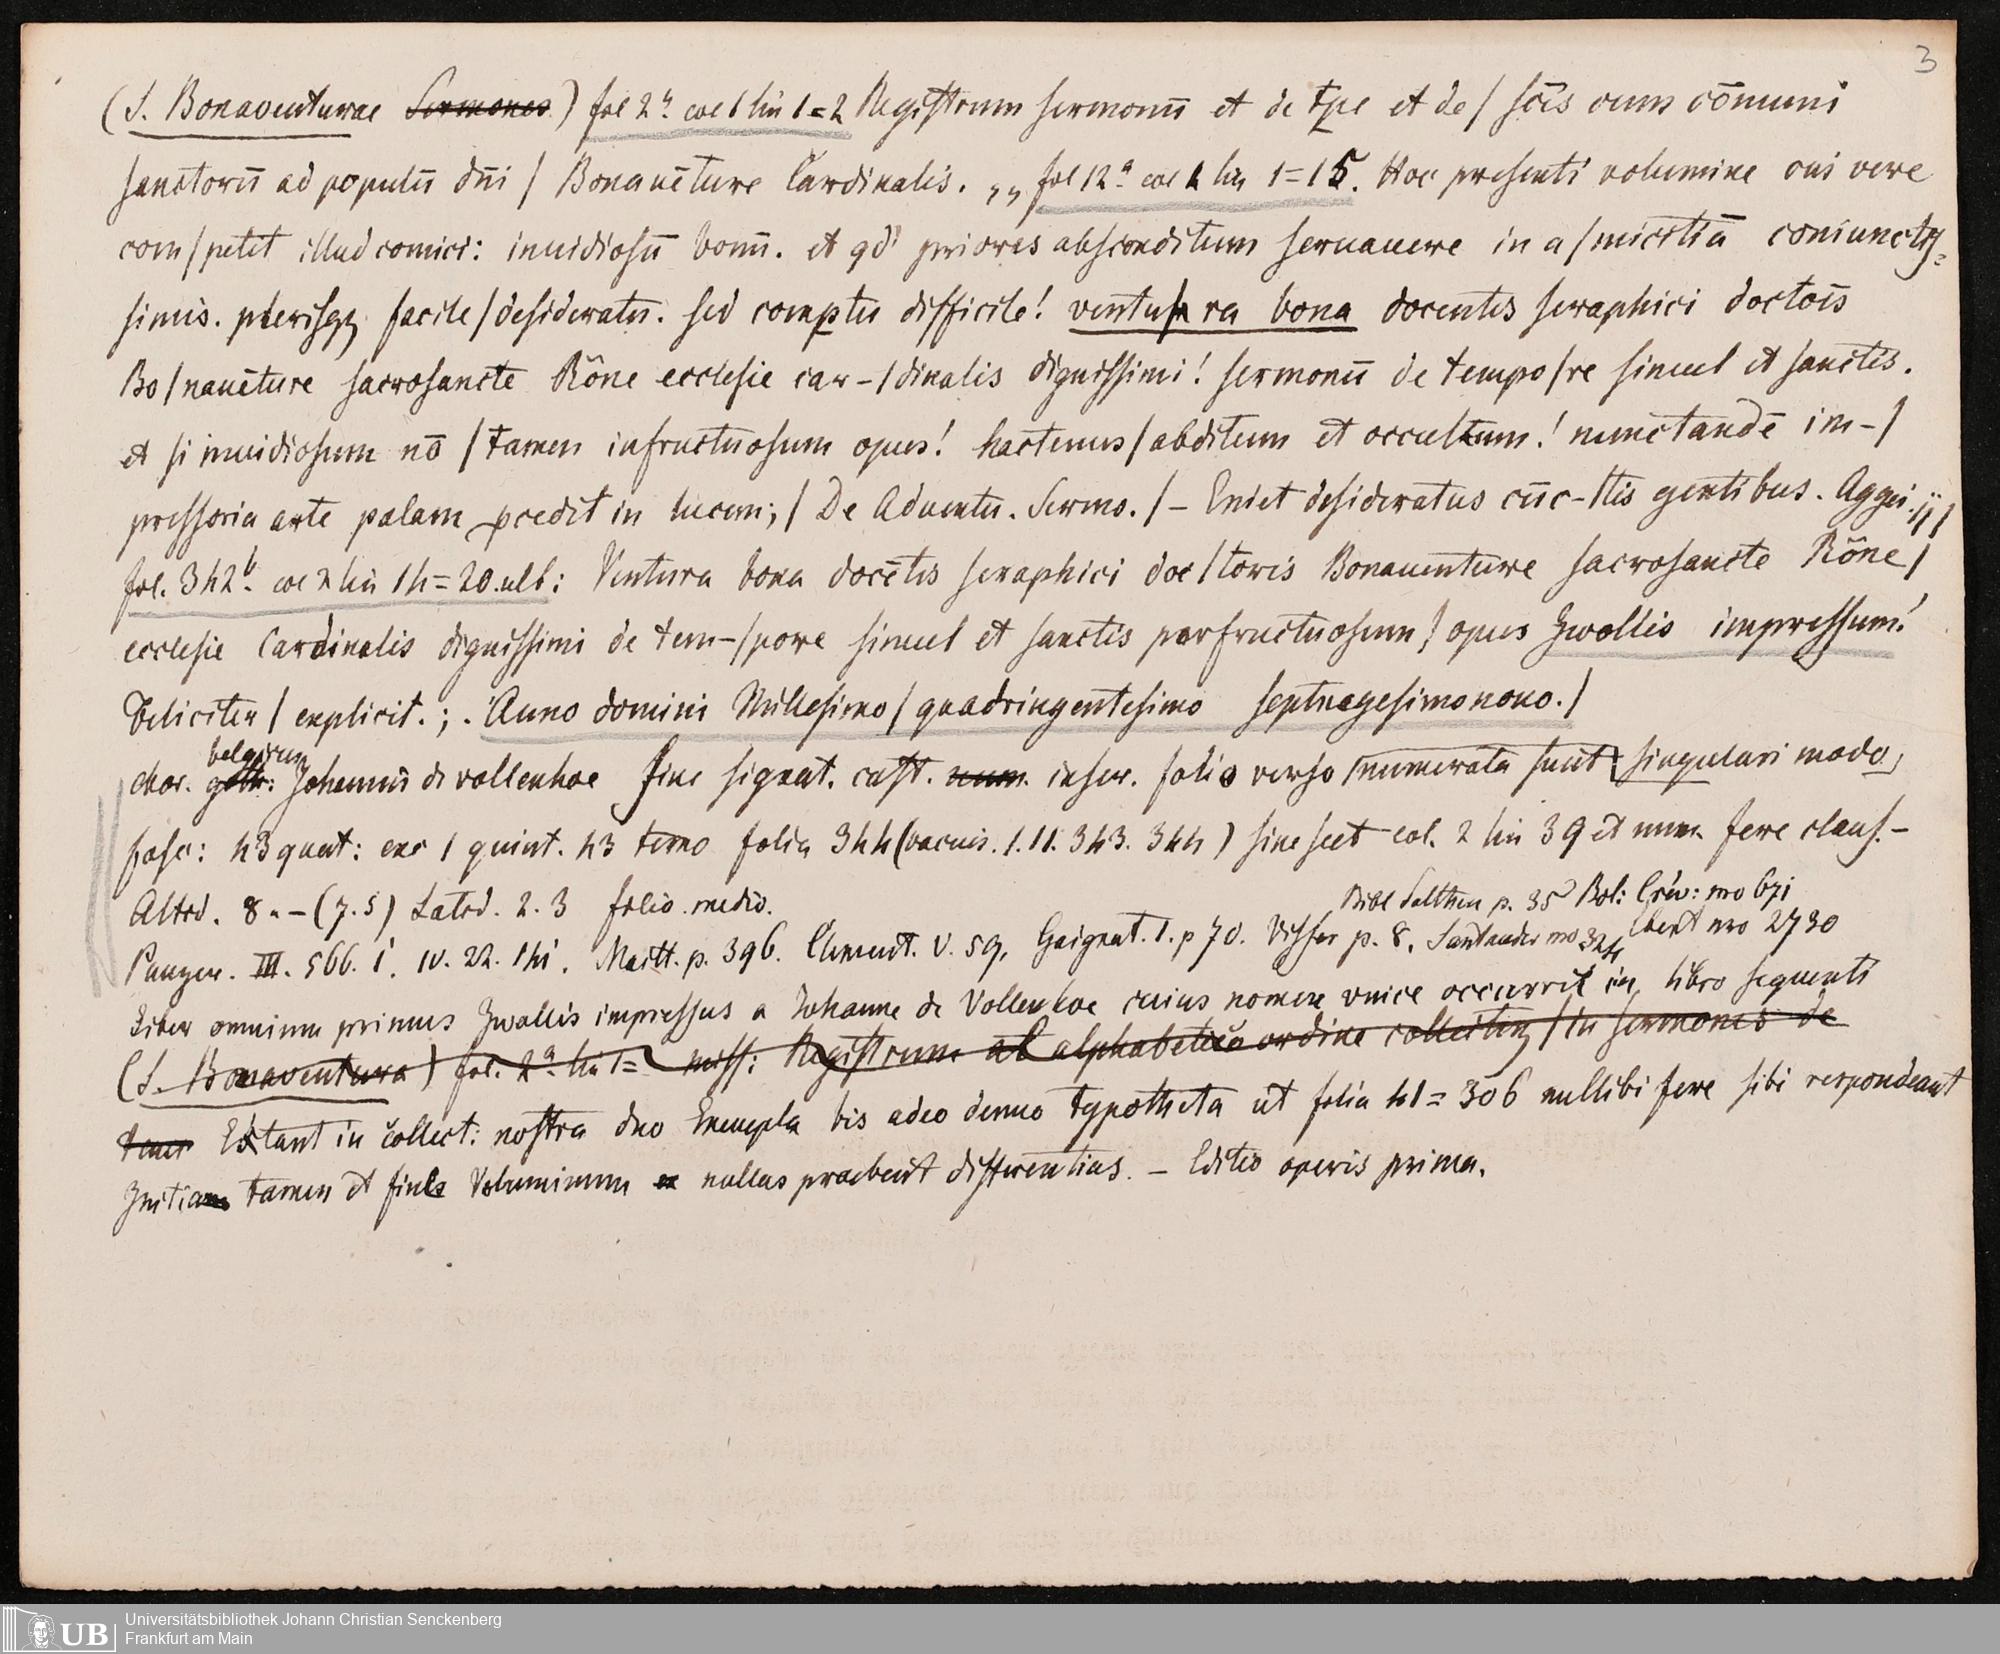 3
(S. Bonaventurae Sermones) fol 2ª col 1 lin 1=2 Registrum sermonū et de tpe et de / scīs cum cōmuni
sanctorū ad populū dn̄i / Bonauēture Cardinalis. „ fol 12ª col 1 lin 1=15. Hoc presenti volumine cui vere
com/petit illud comici: inuidiosū bonū. et qd' priores absconditum seruauere in a/micitiā coniunctis=
simis. plerisqz facile / desideratū. sed comptu difficile! ventura bona docentis seraphici doctoīs
Bo/nauēture sacrosancte Rōne ecclesie car-/dinalis dignissimi! sermonū de tempo/re simul et sanctis.
et si inuidiosum nō / tamen infructuosum opus! hactenus / abditum et occultum! nunctandē im-/
pressoria arte palam predit in lucem; / De Aduentu. Sermo. / - Eniet desideratus cūc-/tis gentibus. Aggei. ij /
fol. 342b. col 2 lin 14=20. ult: Ventura bona docētis seraphici doc/toris Bonauenture sacrosancte Rōne /
ecclesie Cardinalis dignissimi de tem-/pore simul et sanctis perfructuosum / opus Zwollis impressum!
Feliciter / explicit. ; . Anno domini Millesimo / quadringentesimo septuagesimonono. /
char. goth: belgicum Johannis de vollenhoe sine signat. cust. num. inser. folio verso numerata sunt singulari modo,
fasc: 43 quat: exc 1 quint. 43 terno folia 344 (vacuis. 1. 11. 343. 344) sine sect col. 2 lin 39 et num fere claus. -
Altid. 8" - (7.5) Latid. 2. 3 folio medio.
Bibl Salthen p. 35 Bol: Crev: nro 671
Panzer. III. 566. 1. IV. 22. 141. Maitt. p. 396. Clement. V. 59. Gaignat. 1. p 70. Visser p. 8. Santander no 324 Ebert nro 2730
Liber omnium primus Zwollis impressus a Johanne de Vollenhoe cuius nomen vnice occurrit in libro sequenti
(S. Bonaventura) fol. 2ª lin 1= Registrum alphabetico ordine collectum / in sermones de
Extant in collect: nostra duo Exempla bis adeo denuo typotheta ut folia 41=306 nullibi fere sibi respondeant
Initia tamen et fines Voluminum nullas praebent differentias. - Editio operis prima.
UB Universitätsbibliothek Johann Christian Senckenberg
Frankfurt am Main